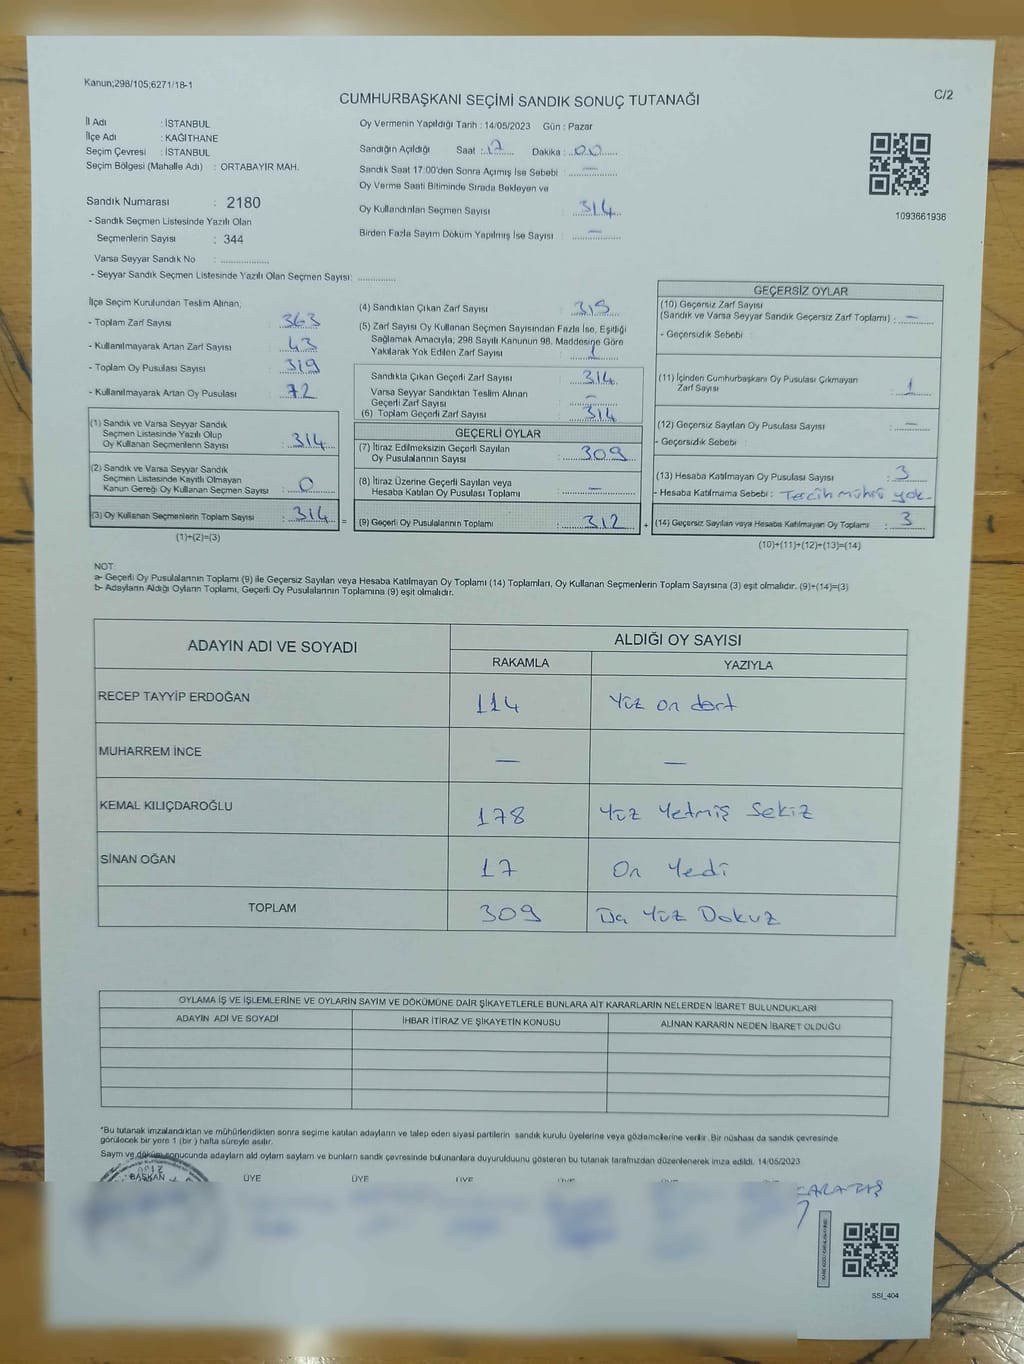 Kanun;298/105;6271/18-1
C/2
CUMHURBAŞKANI SEÇİMİ SANDIK SONUÇ TUTANAĞI
İl Adı : İSTANBUL
İlçe Adı : KAĞITHANE
Seçim Çevresi : İSTANBUL
Seçim Bölgesi (Mahalle Adı) : ORTABAYIR MAH.
Sandık Numarası : 2180
- Sandık Seçmen Listesinde Yazılı Olan
Seçmenlerin Sayısı : 344
Varsa Seyyar Sandık No : ................
- Seyyar Sandık Seçmen Listesinde Yazılı Olan Seçmen Sayısı: ............
Oy Vermenin Yapıldığı Tarih : 14/05/2023 Gün : Pazar
Sandığın Açıldığı Saat : 17 Dakika : 00
Sandık Saat 17:00'den Sonra Açımış İse Sebebi : —
Oy Verme Saati Bitiminde Sırada Bekleyen ve
Oy Kullandırılan Seçmen Sayısı : 314
Birden Fazla Sayım Döküm Yapılmış İse Sayısı : —
1093661936
İlçe Seçim Kurulundan Teslim Alınan;
- Toplam Zarf Sayısı : 363
- Kullanılmayarak Artan Zarf Sayısı : 43
- Toplam Oy Pusulası Sayısı : 319
- Kullanılmayarak Artan Oy Pusulası : 72
(1) Sandık ve Varsa Seyyar Sandık
Seçmen Listesinde Yazılı Olup
Oy Kullanan Seçmenlerin Sayısı : 314
(2) Sandık ve Varsa Seyyar Sandık
Seçmen Listesinde Kayıtlı Olmayan
Kanun Gereği Oy Kullanan Seçmen Sayısı : 0
(3) Oy Kullanan Seçmenlerin Toplam Sayısı : 314 =
(1)+(2)=(3)
(4) Sandıktan Çıkan Zarf Sayısı : 315
(5) Zarf Sayısı Oy Kullanan Seçmen Sayısından Fazla İse, Eşitliği
Sağlamak Amacıyla; 298 Sayılı Kanunun 98. Maddesine Göre
Yakılarak Yok Edilen Zarf Sayısı : 1
Sandıkta Çıkan Geçerli Zarf Sayısı : 314
Varsa Seyyar Sandıktan Teslim Alınan
Geçerli Zarf Sayısı : —
(6) Toplam Geçerli Zarf Sayısı : 314
GEÇERLİ OYLAR
(7) İtiraz Edilmeksizin Geçerli Sayılan
Oy Pusulalarının Sayısı : 309
(8) İtiraz Üzerine Geçerli Sayılan veya
Hesaba Katılan Oy Pusulası Toplamı : —
(9) Geçerli Oy Pusulalarının Toplamı : 312 +
GEÇERSİZ OYLAR
(10) Geçersiz Zarf Sayısı
(Sandık ve Varsa Seyyar Sandık Geçersiz Zarf Toplamı) : —
- Geçersizlik Sebebi :
(11) İçinden Cumhurbaşkanı Oy Pusulası Çıkmayan
Zarf Sayısı : 1
(12) Geçersiz Sayılan Oy Pusulası Sayısı : —
- Geçersizlik Sebebi :
(13) Hesaba Katılmayan Oy Pusulası Sayısı : 3
- Hesaba Katılmama Sebebi : Tercih mührü yok
(14) Geçersiz Sayılan veya Hesaba Katılmayan Oy Toplamı : 3
(10)+(11)+(12)+(13)=(14)
NOT:
a- Geçerli Oy Pusulalarının Toplamı (9) ile Geçersiz Sayılan veya Hesaba Katılmayan Oy Toplamı (14) Toplamları, Oy Kullanan Seçmenlerin Toplam Sayısına (3) eşit olmalıdır. (9)+(14)=(3)
b- Adayların Aldığı Oyların Toplamı, Geçerli Oy Pusulalarının Toplamına (9) eşit olmalıdır.
ADAYIN ADI VE SOYADI
ALDIĞI OY SAYISI
RAKAMLA YAZIYLA
RECEP TAYYİP ERDOĞAN 114 Yüz on dört
MUHARREM İNCE — —
KEMAL KILIÇDAROĞLU 178 Yüz Yetmiş Sekiz
SİNAN OĞAN 17 On Yedi
TOPLAM 309 Yüz Dokuz
OYLAMA İŞ VE İŞLEMLERİNE VE OYLARIN SAYIM VE DÖKÜMÜNE DAİR ŞİKAYETLERLE BUNLARA AİT KARARLARIN NELERDEN İBARET BULUNDUKLARI
ADAYIN ADI VE SOYADI İHBAR İTİRAZ VE ŞİKAYETİN KONUSU ALINAN KARARIN NEDEN İBARET OLDUĞU
*Bu tutanak imzalandıktan ve mühürlendikten sonra seçime katılan adayların ve talep eden siyasi partilerin sandık kurulu üyelerine veya gözlemcilerine verilir. Bir nüshası da sandık çevresinde
görülecek bir yere 1 (bir ) hafta süreyle asılır.
Sayım ve döküm sonucunda adayların ald oyların sayların ve bunların sandık çevresinde bulunanlara duyurulduunu gösteren bu tutanak tarafımızdan düzenlenerek imza edildi. 14/05/2023
BAŞKAN ÜYE ÜYE
SSI_404